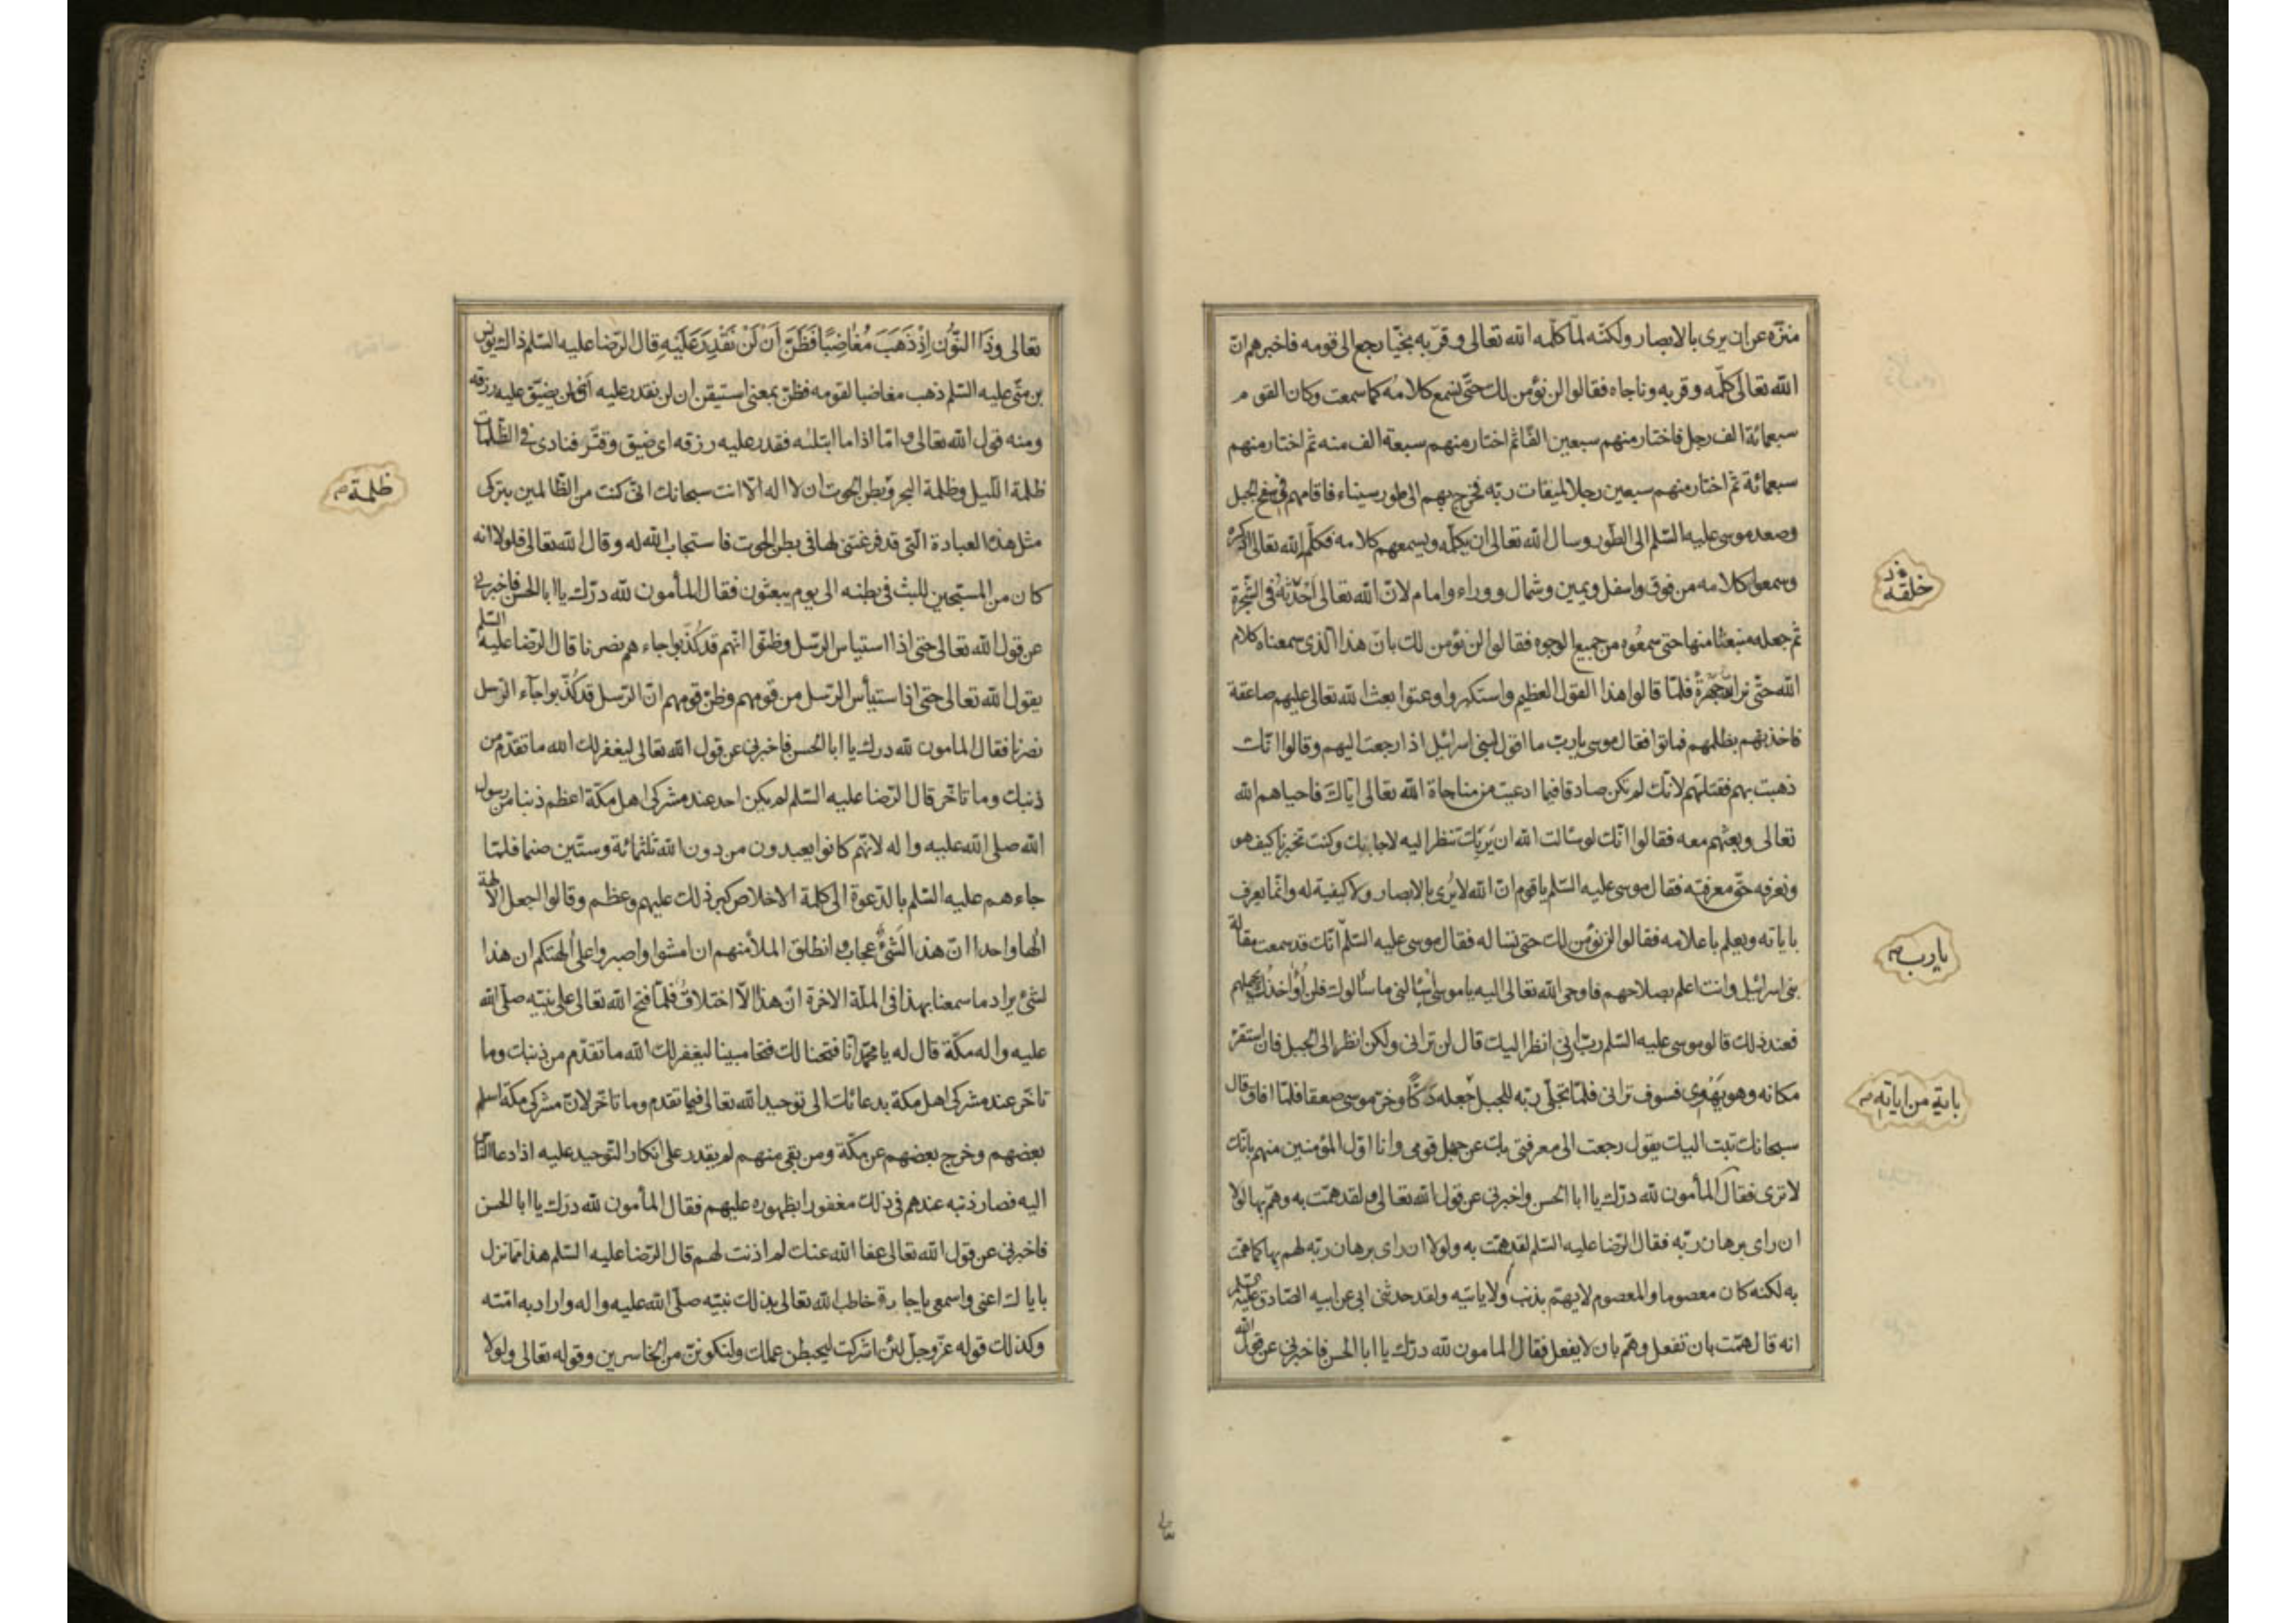 منزّه عن ان يرى بالابصار ولكنّه لمّا كلّمه الله تعالى وقرّبه نجيّا رجع الى قومه فاخبرهم انّ
الله تعالى كلّمه وقربه وناجاه فقالوا لن نؤمن لك حتّى نسمع كلامه كما سمعت وكان القوم
سبعمائة الف رجل فاختار منهم سبعين الفا ثم اختار منهم سبعة الف منه ثم اختار منهم
سبعمائة ثم اختار منهم سبعين رجلا لميقات ربّه فخرج بهم الى طور سيناء فاقامهم فى سفح الجبل
وصعد موسى عليه السّلم الى الطّور وسال الله تعالى ان يكلّمه ويسمعهم كلامه فكلّمه الله تعالى ذكره
وسمعوا كلامه من فوق واسفل ويمين وشمال ووراء وامام لانّ الله تعالى احدثه فى الشّجرة
خلقه
ثم جعله منبعثا منها حتى سمعوه من جميع الوجوه فقالوا لن نؤمن لك بانّ هذا الّذى سمعناه كلام
الله حتّى نرى الله جهرة فلمّا قالوا هذا القول العظيم واستكبروا وعتوا بعث الله تعالى عليهم صاعقة
فاخذتهم بظلمهم فماتوا فقال موسى يا ربّ ما اقول لبنى اسرائيل اذا رجعت اليهم وقالوا انّك
ذهبت بهم فقتلتهم لانّك لم تكن صادقا فيما ادعيت من مناجاة الله تعالى ايّاك فاحياهم الله
تعالى وبعثهم معه فقالوا انّك لو سالت الله ان يريك تنظر اليه لاجابك وكنت تخبرنا كيف هو
ونعرفه حقّ معرفته فقال موسى عليه السّلم يا قوم انّ الله لا يرى بالابصار ولا كيفية له وانّما يعرف
باياته ويعلم باعلامه فقالوا لن نؤمن لك حتى تساله فقال موسى عليه السّلم انّك قد سمعت مقالة
يا رب
بنى اسرائيل وانت اعلم بصلاحهم فاوحى الله تعالى اليه يا موسى اسالنى ما سالوك فلن أؤاخذك بجهلهم
فعند ذلك قال موسى عليه السّلم ربّ ارنى انظر اليك قال لن ترانى ولكن انظر الى الجبل فان استقرّ
مكانه وهو يهوى فسوف ترانى فلمّا تجلّى ربّه للجبل جعله دكّا وخرّ موسى صعقا فلمّا افاق قال
باية من اياته
سبحانك تبت اليك يقول رجعت الى معرفتى بك عن جهل قومى وانا اوّل المؤمنين منهم بانّك
لا ترى فقال المأمون لله درّك يا ابا الحسن واخبرنى عن قول الله تعالى ولقد همّت به وهمّ بها لولا
ان راى برهان ربّه فقال الرّضا عليه السّلم لقد همّت به ولولا ان راى برهان ربّه لهم بها كما همّت
به لكنه كان معصوما والمعصوم لا يهتم بذنب ولا ياتيه ولقد حدثنى ابى عن ابيه الصّادق عليه السّلم
انه قال همّت بان تفعل وهمّ بان لا يفعل فقال المامون لله درّك يا ابا الحسن فاخبرنى عن قول الله
تعالى
تعالى وَذَا النُّونِ إِذْ ذَهَبَ مُغَاضِبًا فَظَنَّ أَنْ لَنْ نَقْدِرَ عَلَيْهِ قال الرّضا عليه السّلم ذاك يونس
بن متّى عليه السّلم ذهب مغاضبا لقومه فظنّ بمعنى استيقن ان لن نقدر عليه أى لن يضيّق عليه رزقه
ومنه قول الله تعالى وامّا اذا ما ابتلئه فقدر عليه رزقه اى ضيق وقتّر فنادى فى الظّلمات
ظلمة اللّيل وظلمة البحر وبطن الحوت ان لا اله الّا انت سبحانك انّى كنت من الظّالمين بتركى
ظلمة
مثل هذه العبادة الّتى قد فرغتنى لها فى بطن الحوت فاستجاب الله له وقال الله تعالى فلولا انه
كان من المسبّحين للبث فى بطنه الى يوم يبعثون فقال المأمون لله درّك يا ابا الحسن فاخبرنى
عن قول الله تعالى حتى اذا استياس الرّسل وظنّوا انّهم قد كُذّبوا جاءهم نصرنا قال الرّضا عليه السّلم
يقول الله تعالى حتى اذا استيأس الرّسل من قومهم وظنّ قومهم انّ الرّسل قد كُذّبوا جآء الرّسل
نصرنا فقال المامون لله درك يا ابا الحسن فاخبرنى عن قول الله تعالى ليغفر لك الله ما تقدّم من
ذنبك وما تاخّر قال الرّضا عليه السّلم لم يكن احد عند مشركى اهل مكّة اعظم ذنبا من رسول
الله صلى الله عليه واله لانّهم كانوا يعبدون من دون الله ثلثمائة وستّين صنما فلمّا
جاءهم عليه السّلم بالدّعوة الى كلمة الاخلاص كبر ذلك عليهم وعظم وقالوا اجعل الالهة
الها واحدا انّ هذا لشئ عجاب وانطلق الملأ منهم ان امشوا واصبروا على الهتكم ان هذا
لشئ يراد ما سمعنا بهذا فى الملّة الاخرة ان هذا الّا اختلاق فلمّا فتح الله تعالى على نبيّه صلّى الله
عليه واله مكّة قال له يا محمّد انّا فتحنا لك فتحا مبينا ليغفر لك الله ما تقدّم من ذنبك وما
تاخّر عند مشركى اهل مكة بدعائك الى توحيد الله تعالى فيما تقدم وما تاخّر لانّ مشركى مكّة اسلم
بعضهم وخرج بعضهم عن مكّة ومن بقى منهم لم يقدر على انكار التّوحيد عليه اذا دعا النّاس
اليه فصار ذنبه عندهم فى ذلك مغفورا بظهوره عليهم فقال المأمون لله درّك يا ابا الحسن
فاخبرنى عن قول الله تعالى عفا الله عنك لم اذنت لهم قال الرّضا عليه السّلم هذا ممّا نزل
باياك اعنى واسمعى يا جارة خاطب الله تعالى بذلك نبيّه صلّى الله عليه واله واراد به امّته
وكذلك قوله عزّ وجلّ لئن اشركت ليحبطن عملك ولتكوننّ من الخاسرين وقوله تعالى ولولا